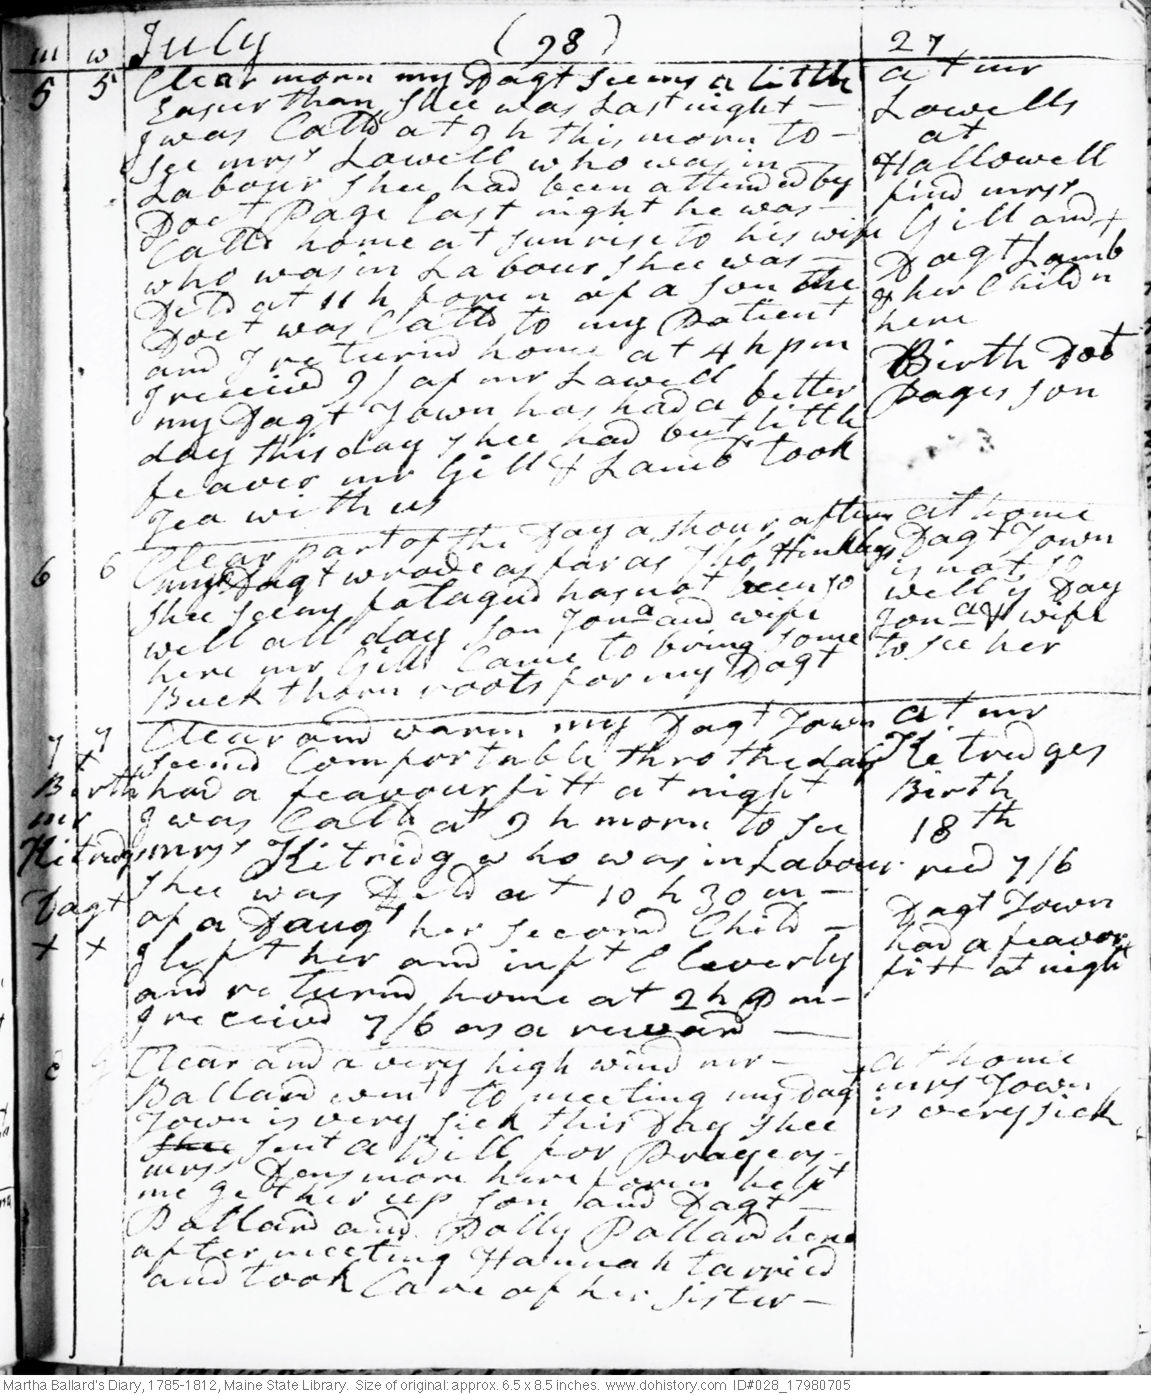 m w July (98) 27
5 5 Clear morn my Dagt seems a little
Easier than shee was Last night —
I was Calld at 9 h this morn to –
see mrss Lowell who was in —
Labour shee had been attended by
Doct Page last night he was –
Calld home at sunrise to his wife
who was in Labour shee was –
Deld at 11 h foren of a son the
Doct was Calld to my Patient
and I returnd home at 4 h pm
I receivd 9/ of mr Lowell
my Dagt Town has had a better
day this day shee had but little
feaver mr Gill & Lamb took
Tea with us
at mr
Lowells
at
Hallowell
find mrss
Gill and
Dagt Lamb
& her Childn
here
Birth Dot
Pages son
6 6 Clear part of the Day a shour aftern
my Dagt wrode as far as Hinkleys
shee seems fatagud has not been so
well all day son Jona and wife
here mr Gill Came to bring some
Buckthorn roots for my Dagt
at home
Dagt Town
is not so
well ys Day
Jona & wife
to see her
7 7 Clear and warm my Dagt Town
seemd Comfortable thro the day
had a feavour fitt at night
I was Calld at 9 h morn to see
mrss Kitridg who was in Labour
shee was Deld at 10 h 30 m –
of a Daugt her second Child –
I left her and inft Cleverly
and returnd home at 2 h pm –
I receivd 7/6 as a reward —
Birth
mr
Kitridgs
Dagt
+ x
at mr
Kitredges
Birth
18th
recd 7/6
Dagt Town
had a feavor
fitt at night
Clear and a very high wind mr –
Ballard went to meeting my Dagt
Town is very sick this Day shee
shee sent a Bill for Prayers –
mrss Densmore here foren helpt
me get her up son and Dagt –
Ballard and Dolly Ballard here
after meeting Hannah tarried
and took Care of her sister –
at home
mrs Town
is very sick
Martha Ballard's Diary, 1785-1812, Maine State Library. Size of original: approx. 6.5 x 8.5 inches. www.dohistory.com ID#028_17980705